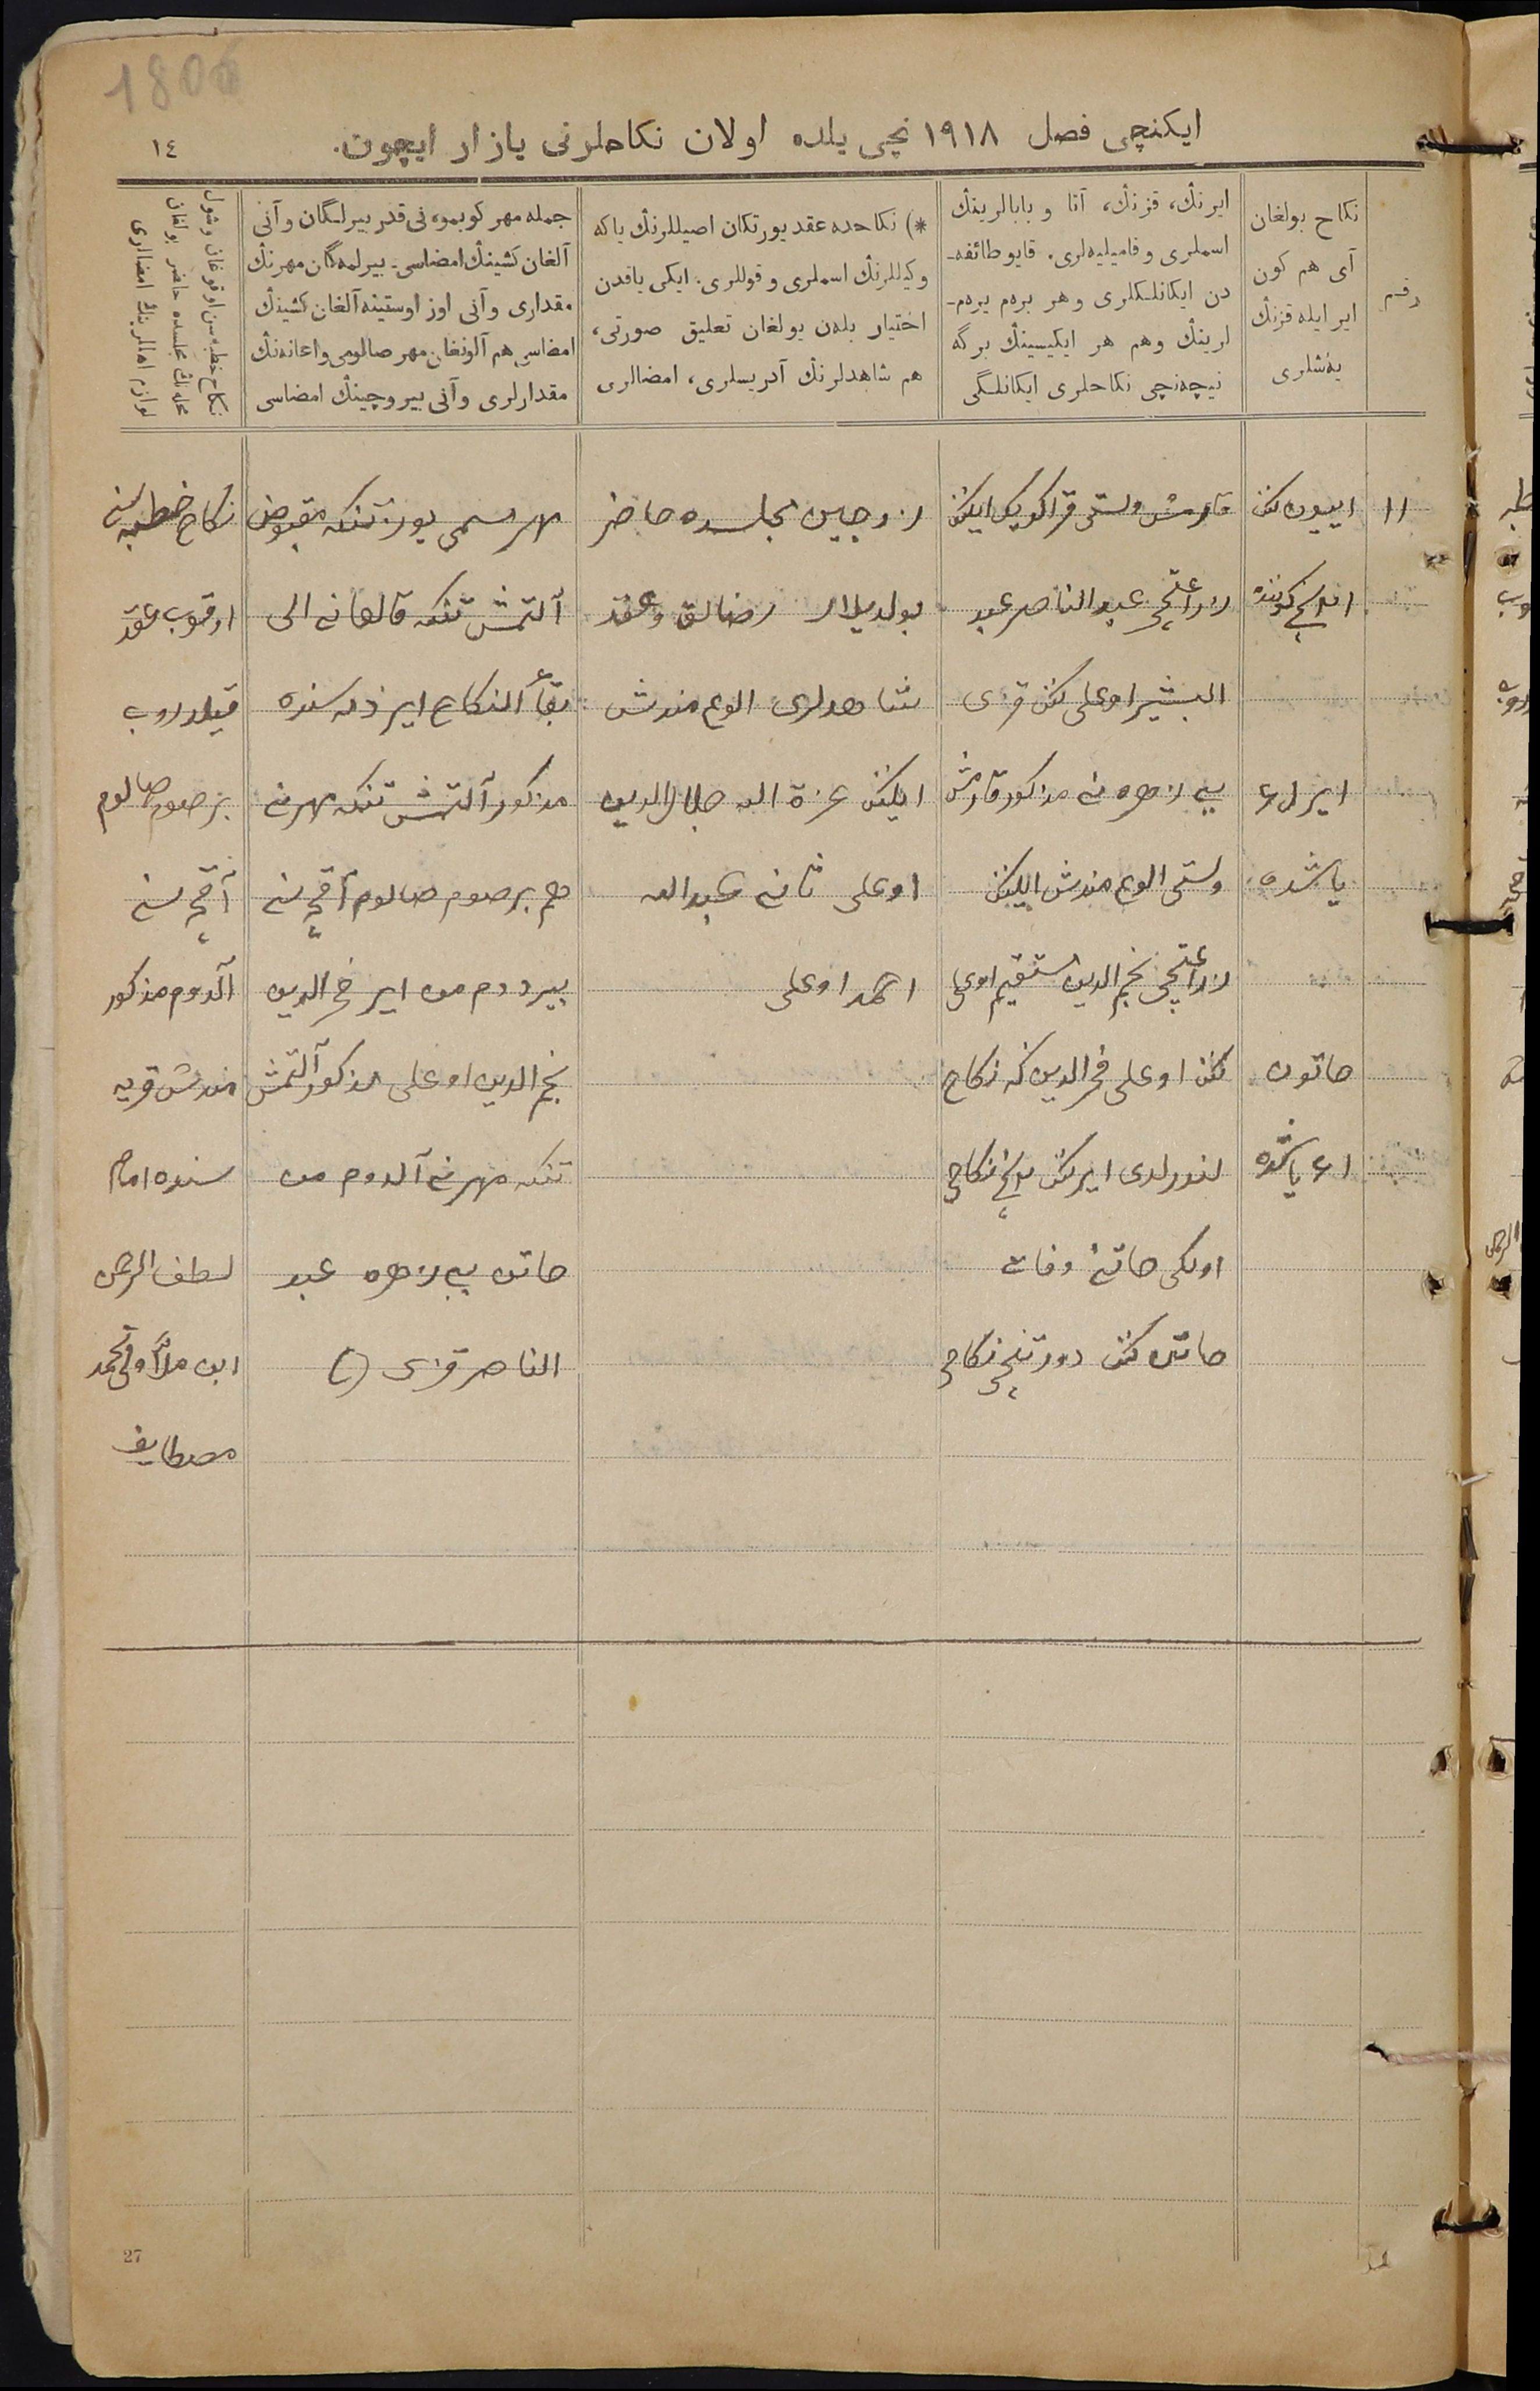 1806
ایكنچی فصل ١٩١٨ نچی یلده اولان نكاحلرنی یازار ایچون.
١٤
رقم
نكاح بولغان
آی هم كون
ایر ایله قزنڭ
یه‌شلری
ایرنڭ، قزنڭ، آتا و بابالرینڭ
اسملری و فامیلیه‌لری. قایو طائفه-
دن ایكانلكلری و هر برەم یرەم-
لرینڭ وهم هر ایكیسینڭ برگه
نیچه‌نچی نكاحلری ایكانلگی
*) نكاحده عقد یورتكان اصیللرنڭ یاكه
وكیللرنڭ اسملری و قوللری. ایكی یاقدن
اختیار بله‌ن بولغان تعلیق صورتی،
هم شاهدلرنڭ آدریسلری، امضالری
جمله مهر كوبمو، نی قدر بیرلگان و آنی
آلغان كشینڭ امضاسی. بیرلمه‌گان مهرنڭ
مقداری و آنی اوز اوستینه آلغان كشینڭ
امضاسی هم آلونغان مهر صالومی و اعانه‌نڭ
مقدارلری و آنی بیروچینڭ امضاسی
نكاح خطبه‌سن اوقوغان و شول
محله‌نڭ مجلسده حاضر بولغان
لوازم اهللرینڭ امضالری
١١
اییون نڭ
كوننده
ایر ٤١
یاشده
خاتون
٤١ یاشده
قارمش ولستی قراكوبك ایلینڭ
زراعتچی عبد الناصر عبد
البشیر اوغلی نڭ قزی
بی بی زهره نی مذكور قارمش
ولستی الوغ مندش ایلینڭ
زراعتچی نجم الدین مستقیم اوغلی
نڭ اوغلی فخر الدین كه نكاح
لنورلدی ایرنڭ نكاحی
اولگی خاتنی وفات
خاتن نڭ دورتنچی نكاحی
زوجین مجلسده حاضر
بولدیلار رضالق و عقد
شاهدلری الوغ مندش
ایلینڭ عزة الله جلال الدین
اوغلی ثانی عبد الله
احمد اوغلی
مهر مسمی یوز تنكه مقبوض
آلتمش تنكه قالغانی الی
بقاء النكاح ایر ذمه سنده
مذكور آلتمش تنكه مهرنی
هم بر صوم صالوم آقچه سنی
بیردم من ایر فخر الدین
نجم الدین اوغلی مذكور آلتمش
تنكه مهرنی آلدوم من
خاتن بی بی زهره عبد
الناصر قزی
نكاح خطبه سنی
اوقوب عقد
قیلدروب
بر صوم صالوم
آقچه سنی
آلدوم مذكور
مندش قریه
سنده امام
لطف الرحمن
ابن ملا ولی محمد
مصطایف
27